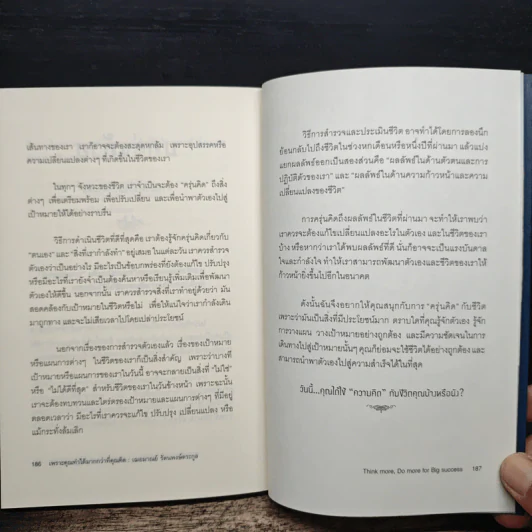 เส้นทางของเรา เราก็อาจจะต้องสะดุดหกล้ม เพราะอุปสรรคหรือ
ความเปลี่ยนแปลงต่างๆ ที่เกิดขึ้นในชีวิตของเรา
ในทุกๆ จังหวะของชีวิต เราจำเป็นจะต้อง “ครุ่นคิด” ถึงสิ่ง
ต่างๆ เพื่อเตรียมพร้อม เพื่อปรับเปลี่ยน และเพื่อนำพาตัวเองไปสู่
เป้าหมายให้ได้อย่างราบรื่น
วิธีการดำเนินชีวิตที่ดีที่สุดคือ เราต้องรู้จักครุ่นคิดเกี่ยวกับ
“ตนเอง” และ “สิ่งที่เราทำ” อยู่เสมอ ในแต่ละวัน เราควรสำรวจ
ตัวเองว่าเป็นอย่างไร มีอะไรเป็นข้อบกพร่องที่ยังต้องแก้ไข ปรับปรุง
หรือมีอะไรที่เรายังจำเป็นต้องค้นหาหรือเรียนรู้เพิ่มเติมเพื่อพัฒนา
ตัวเองให้ดีขึ้น นอกจากนั้น เราควรสำรวจสิ่งที่เราทำอยู่ด้วยว่า มัน
สอดคล้องกับเป้าหมายในชีวิตหรือไม่ เพื่อให้แน่ใจว่าเรากำลังเดิน
มาถูกทาง และจะไม่เสียเวลาไปโดยเปล่าประโยชน์
นอกจากเรื่องของการสำรวจตัวเองแล้ว เรื่องของเป้าหมาย
หรือแผนการต่างๆ ในชีวิตของเราก็เป็นสิ่งสำคัญ เพราะว่าบางที
เป้าหมายหรือแผนการของเราในวันนี้ อาจจะกลายเป็นสิ่งที่ “ไม่ใช่”
หรือ “ไม่ได้ดีที่สุด” สำหรับชีวิตของเราในวันข้างหน้า เพราะฉะนั้น
เราจะต้องทบทวนและไตร่ตรองเป้าหมายและแผนการต่างๆ ที่มีอยู่
ตลอดเวลาว่า มีอะไรที่เราควรจะแก้ไข ปรับปรุง เปลี่ยนแปลง หรือ
แม้กระทั่งล้มเลิก
186 เพราะคุณทำได้มากกว่าที่คุณคิด :
วิธีการสำรวจและประเมินชีวิต อาจทำได้โดยการลองนึก
ย้อนกลับไปถึงชีวิตในช่วงหกเดือนหรือหนึ่งปีที่ผ่านมา แล้วแบ่ง
แยกผลลัพธ์ออกเป็นสองส่วนคือ “ผลลัพธ์ในด้านตัวตนและการ
ปฏิบัติตัวของเรา” และ “ผลลัพธ์ในด้านความก้าวหน้าและความ
เปลี่ยนแปลงของชีวิต”
การครุ่นคิดถึงผลลัพธ์ในชีวิตที่ผ่านมา จะทำให้เราพบว่า
เราควรจะต้องแก้ไขเปลี่ยนแปลงอะไรในตัวเอง และในชีวิตของเรา
บ้าง หรือหากว่าเราได้พบผลลัพธ์ที่ดี นั่นก็อาจจะเป็นแรงบันดาล
ใจและกำลังใจ ทำให้เราสามารถพัฒนาตัวเองและชีวิตของเราให้
ก้าวหน้ายิ่งขึ้นไปอีกในอนาคต
ดังนั้นฉันจึงอยากให้คุณสนุกกับการ “ครุ่นคิด” กับชีวิต
เพราะมันเป็นสิ่งที่มีประโยชน์มาก ตราบใดที่คุณรู้จักตัวเอง รู้จัก
การวางแผน วางเป้าหมายอย่างถูกต้อง และมีความชัดเจนในการ
เดินทางไปสู่เป้าหมายนั้นๆ คุณก็ย่อมจะใช้ชีวิตได้อย่างถูกต้อง และ
สามารถนำพาตัวเองไปสู่ความสำเร็จได้ในที่สุด
วันนี้...คุณได้ใช้ “ความคิด” กับชีวิตคุณบ้างหรือยัง?
Think more, Do more for Big success 187